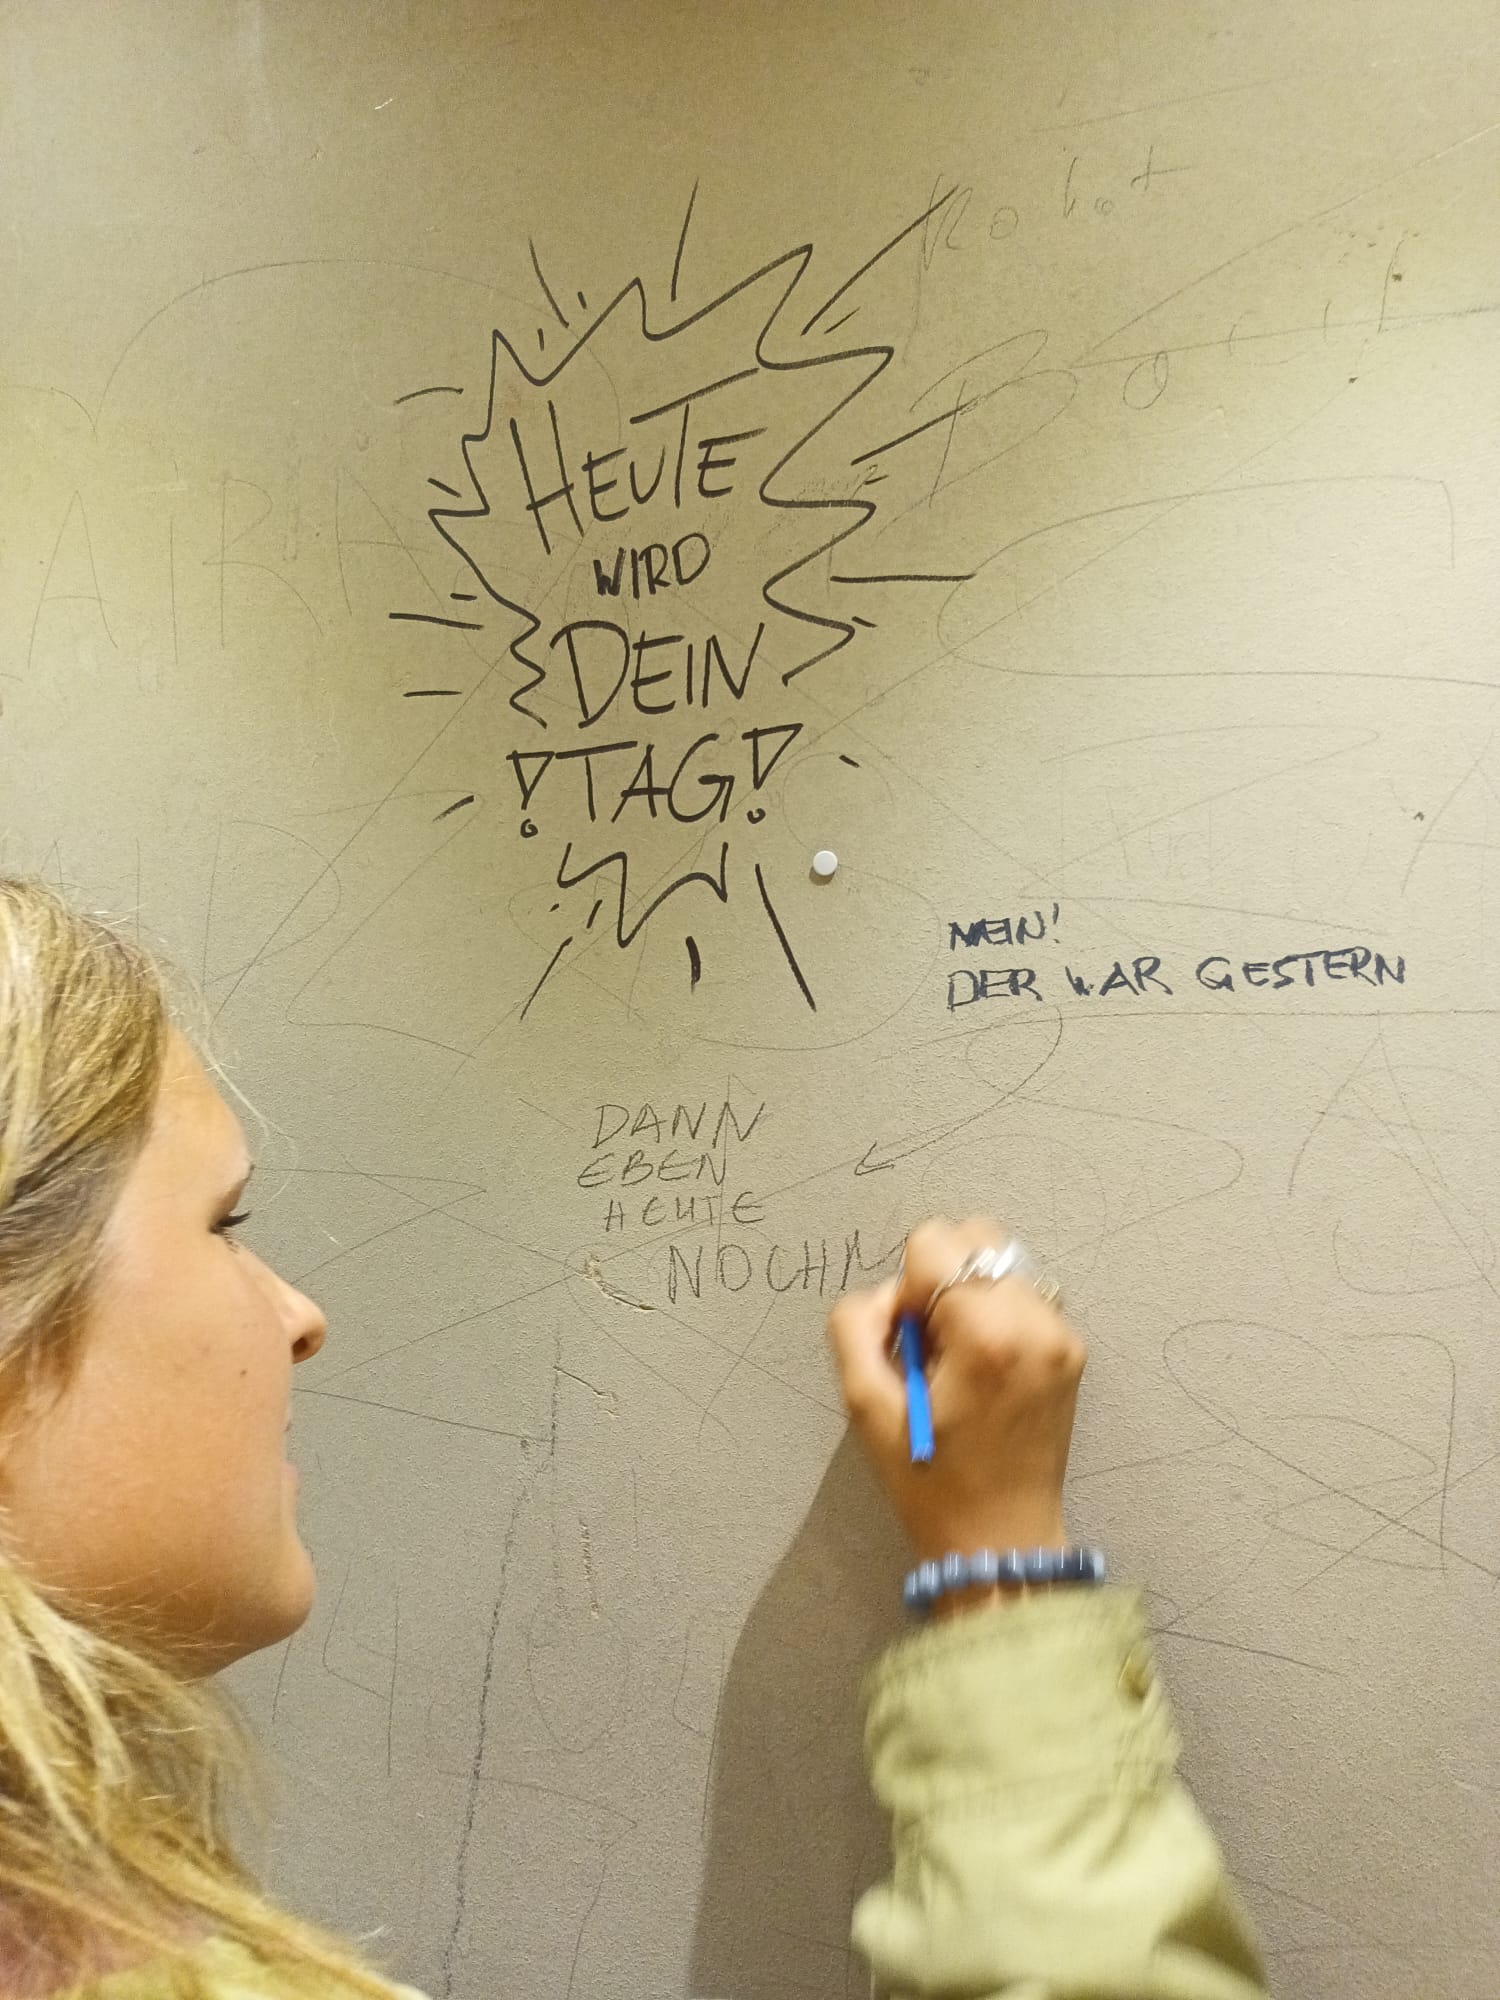 HEUTE
WIRD
DEIN
!TAG!
NEIN!
DER WAR GESTERN
DANN
EBEN
HEUTE
NOCHM
Robot